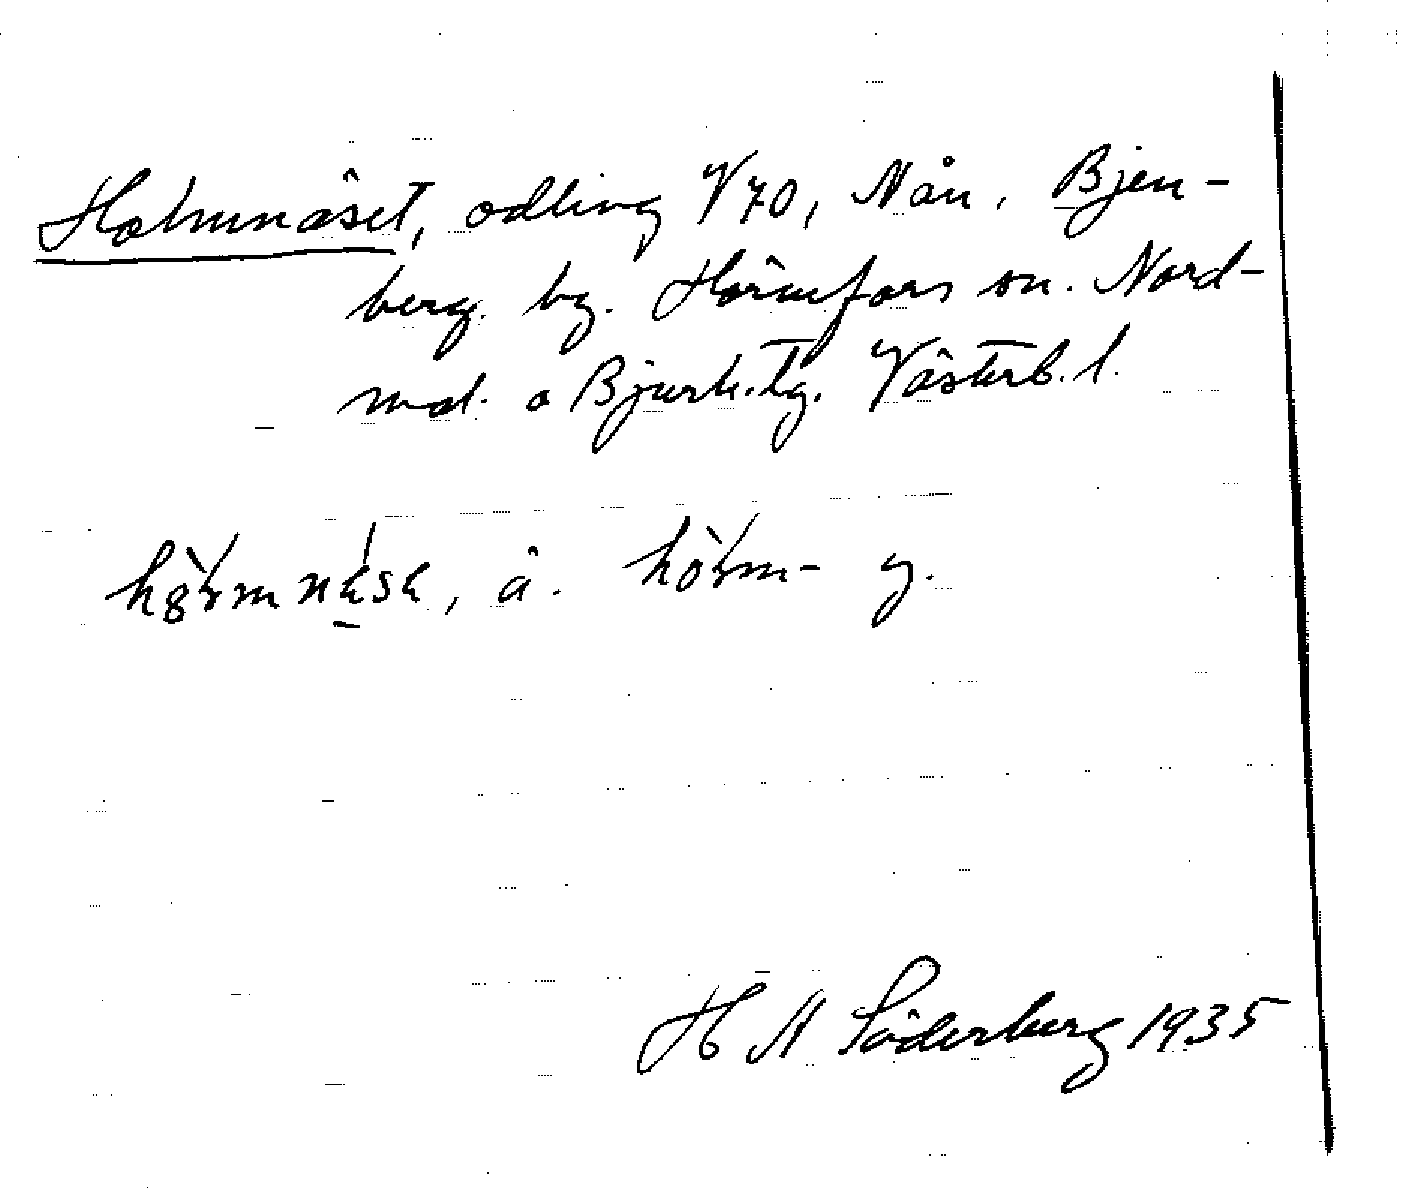 Holmnäset, odling V70, Nån. Bjen-
berg. by. Hörnefors sn. Nord-
mal. o Bjurh. tg. Västerb. l.
, ä. y.
H A Söderberg 1935